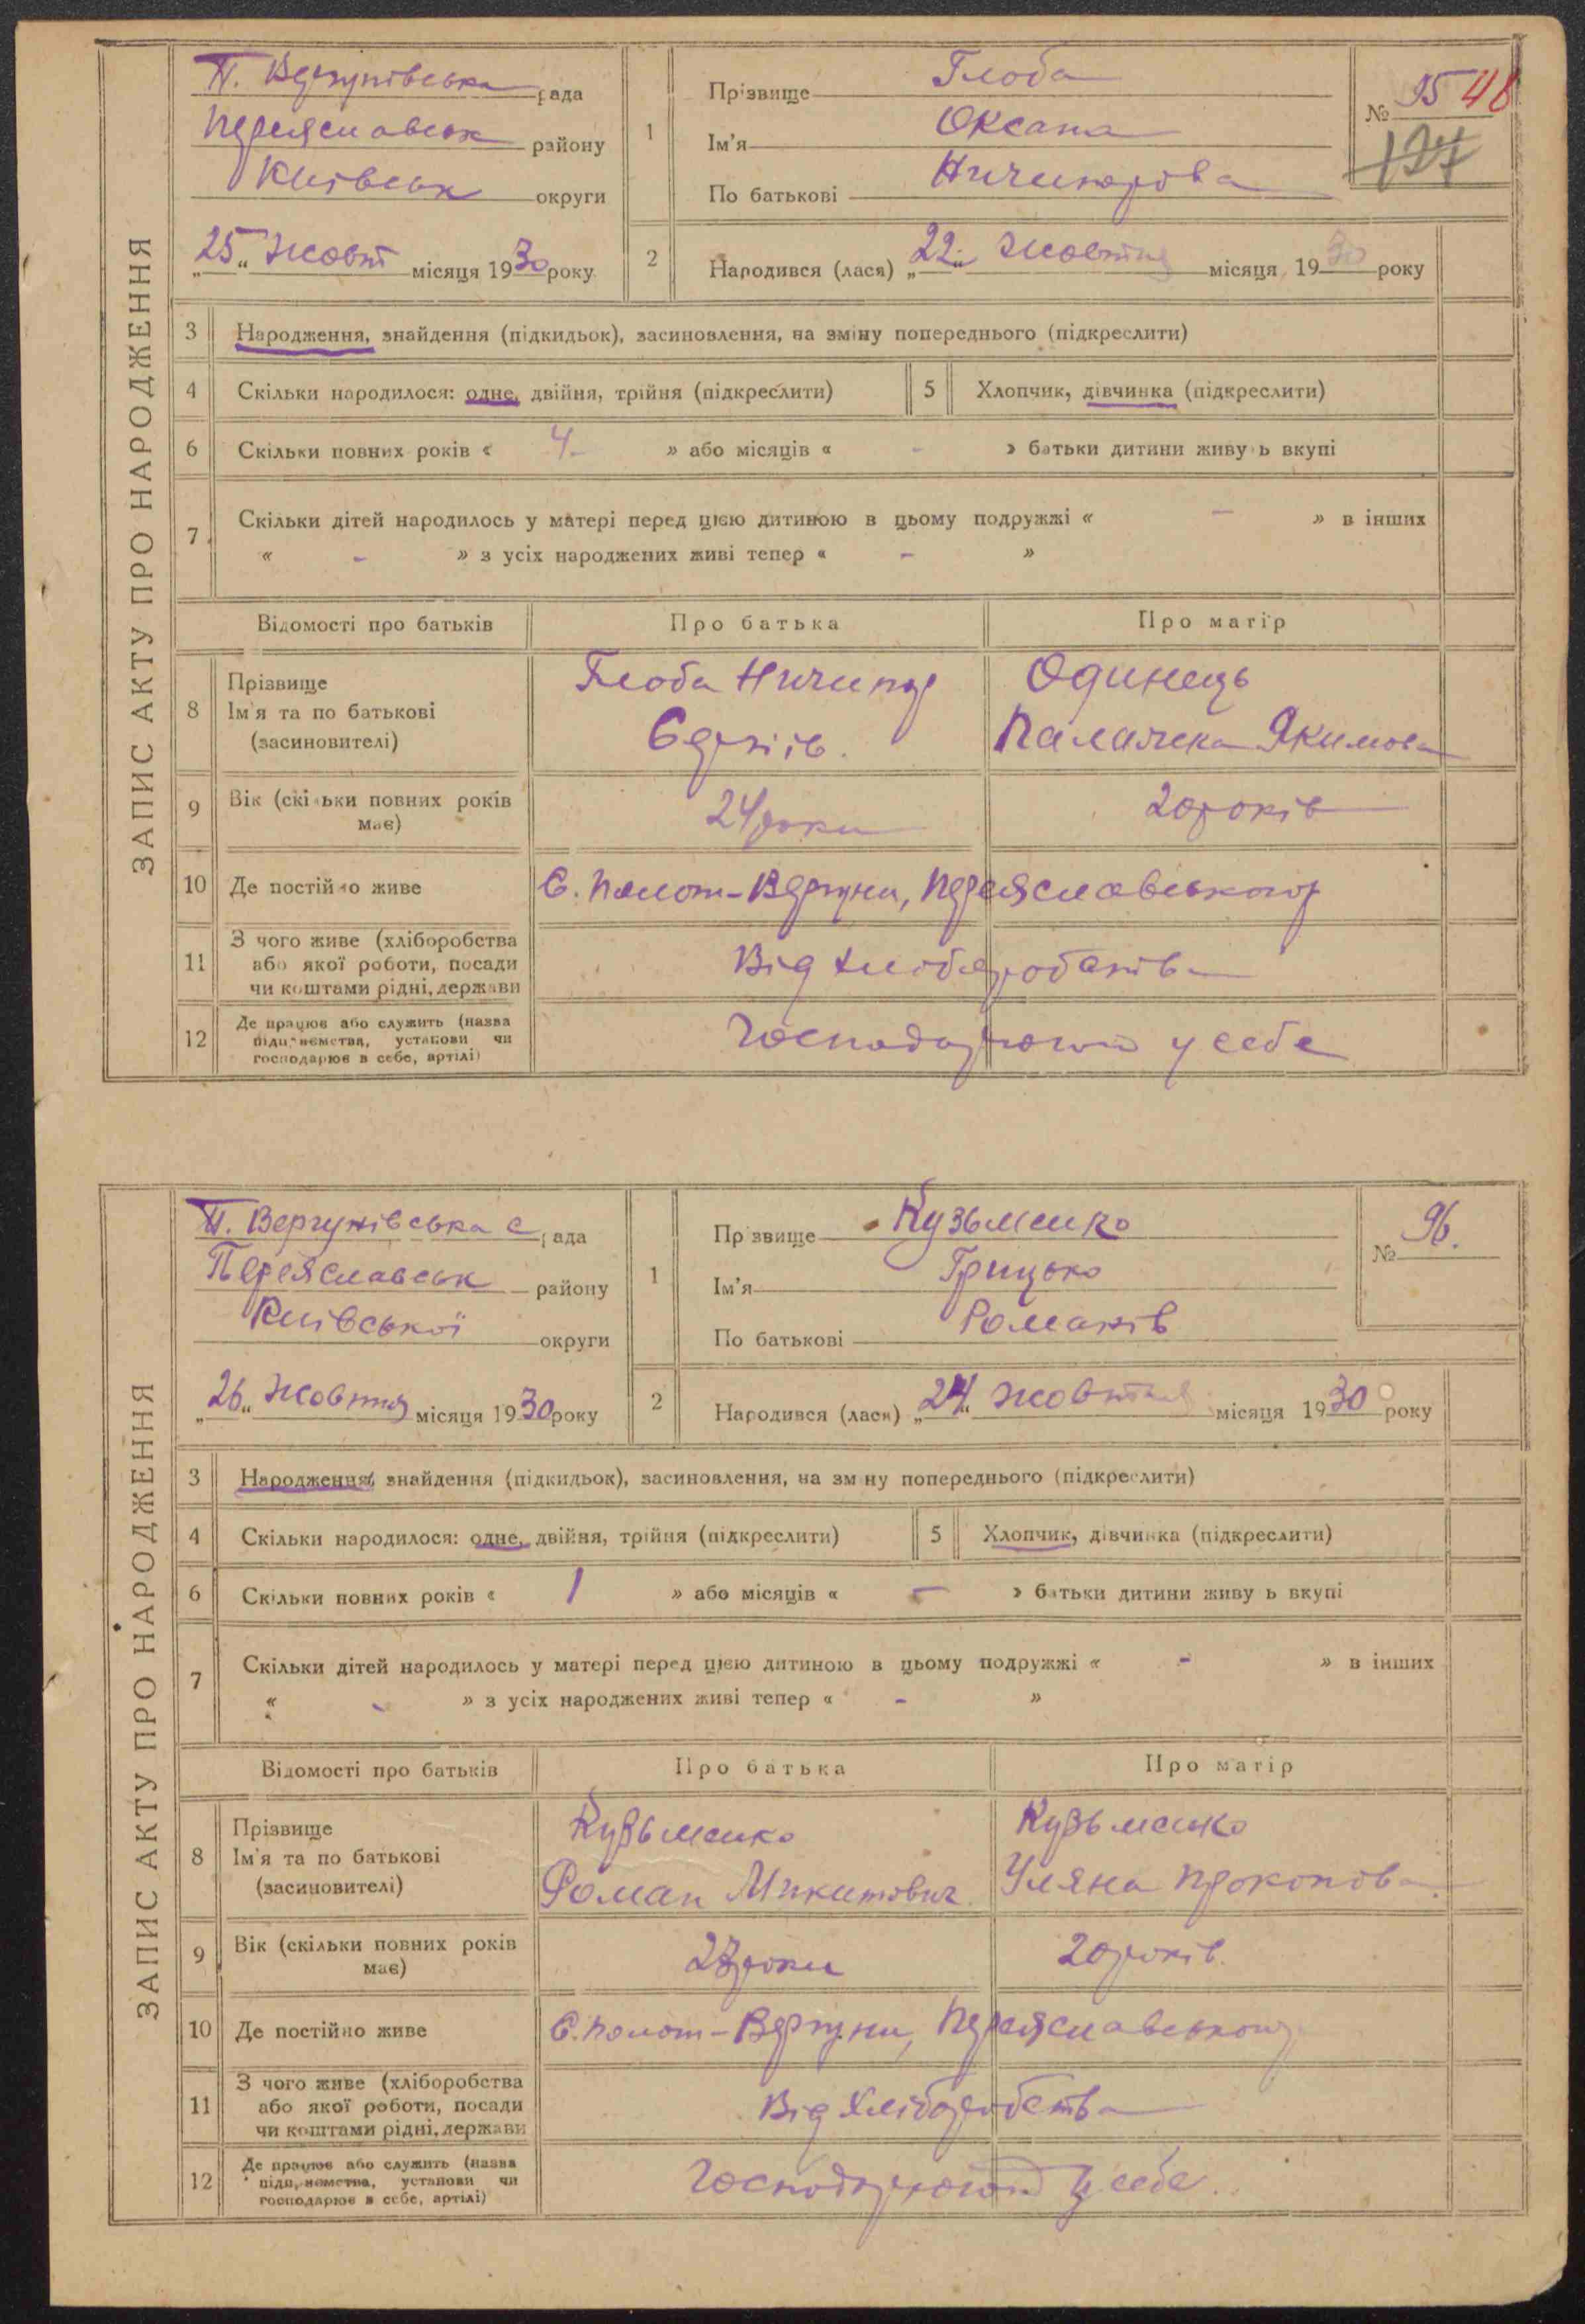 ЗАПИС АКТУ ПРО НАРОДЖЕННЯ
П. Вергунівська рада
Переяславськ району
Київськ округи
„25“ Жовт місяця 1930 року
1
Прізвище Глоба
Ім'я Оксана
По батькові Ничипорова
№ 95 48
127
2 Народився (лася) „22“ Жовтня місяця 1930 року
3 Народження, знайдення (підкидьок), засиновлення, на зміну попереднього (підкреслити)
4 Скільки народилося: одне, двійня, трійня (підкреслити) 5 Хлопчик, дівчинка (підкреслити)
6 Скільки повних років « 4 - » або місяців « - » батьки дитини живуть вкупі
7 Скільки дітей народилось у матері перед цією дитиною в цьому подружжі « - » в інших
« - » з усіх народжених живі тепер « - »
Відомості про батьків Про батька Про матір
8 Прізвище
Ім'я та по батькові
(засиновителі)
Глоба Ничипор
Одинець
Палажка Якимова
9 Вік (скільки повних років
має)
24 роки
20 років
10 Де постійно живе С. Полот-Вергуни, Переяславського р
11 З чого живе (хліборобства
або якої роботи, посади
чи коштами рідні, держави
Від хліборобства
12 Де працює або служить (назва
підприємства, установи чи
господарює в себе, артілі)
Господарюють у себе
ЗАПИС АКТУ ПРО НАРОДЖЕННЯ
П. Вергунівська с рада
Переяславськ району
Київської округи
„26“ Жовтня місяця 1930 року
1
Прізвище Кузьменко
Ім'я Грицько
По батькові Романів
№ 96.
2 Народився (лася) „24“ жовтня місяця 1930 року
3 Народження, знайдення (підкидьок), засиновлення, на зміну попереднього (підкреслити)
4 Скільки народилося: одне, двійня, трійня (підкреслити) 5 Хлопчик, дівчинка (підкреслити)
6 Скільки повних років « 1 » або місяців « - » батьки дитини живуть вкупі
7 Скільки дітей народилось у матері перед цією дитиною в цьому подружжі « - » в інших
« - » з усіх народжених живі тепер « - »
Відомості про батьків Про батька Про матір
8 Прізвище
Ім'я та по батькові
(засиновителі)
Кузьменко
Роман Микитович
Кузьменко
Уляна Прокопова
9 Вік (скільки повних років
має)
роки
20 років.
10 Де постійно живе С. Полот-Вергуни, Переяславського
11 З чого живе (хліборобства
або якої роботи, посади
чи коштами рідні, держави
Від хліборобства
12 Де працює або служить (назва
підприємства, установи чи
господарює в себе, артілі)
Господарюють у себе.